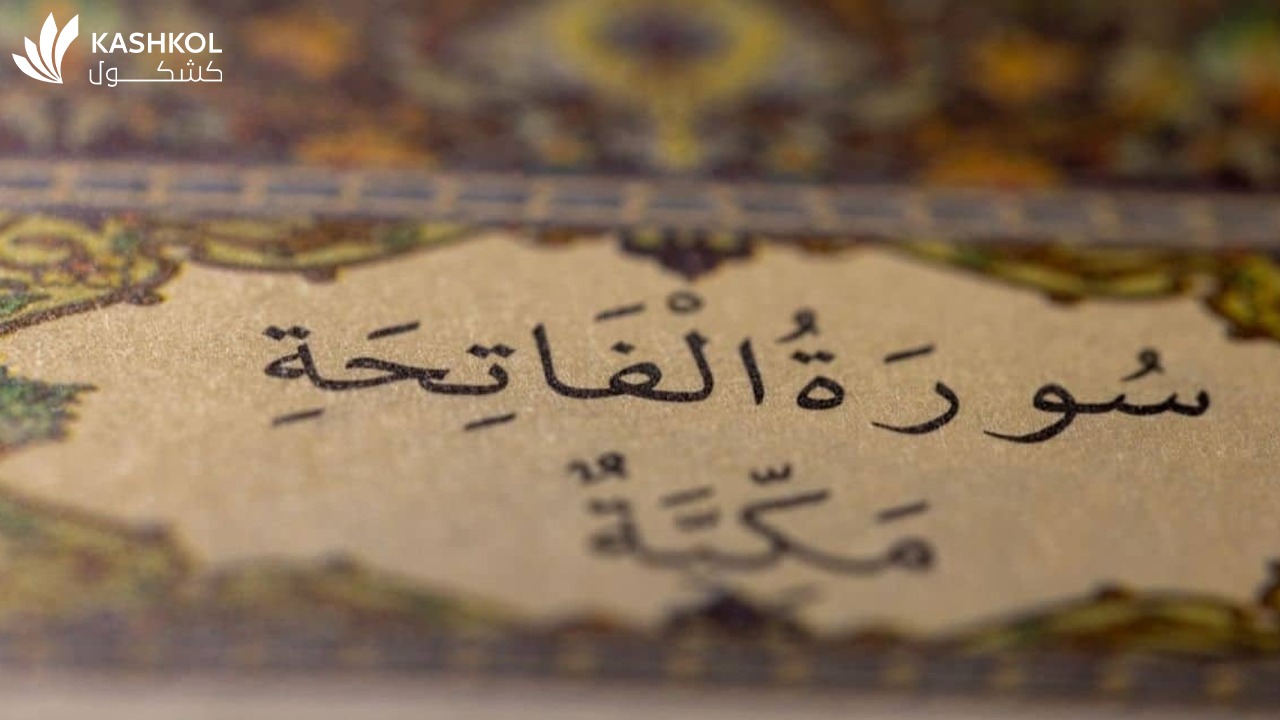 KASHKOL
كشكــــول
سُورَةُ الْفَاتِحَةِ
مَكِّيَّةٌ